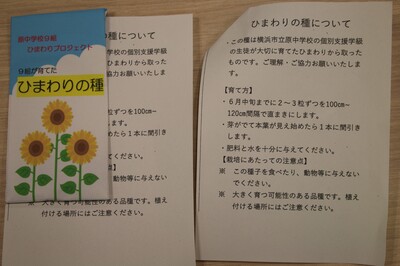 原中学校分級
ひまわりプロジェクト
分級が育てた
ひまわりの種
の種について
学校の個別支援学級
ひまわりから取った
協力お願いいたしま
ずつを100cm~
きにします。
始めたら1本に間引き
てください。
点】
、動物等に与えない
※ 大きく育つ可能性のある品種です。植え
付ける場所にはご注意ください。
ひまわりの種について
この種は横浜市立原中学校の個別支援学級
の生徒が大切に育てたひまわりから取った
ものです。ご理解・ご協力お願いいたしま
す。
【育て方】
・6月中旬までに2~3粒ずつを100cm~
120cm間隔で直まきにします。
・芽がでて本葉が見え始めたら1本に間引き
します。
・肥料と水を十分に与えてください。
【栽培にあたっての注意点】
※ この種子を食べたり、動物等に与えない
でください。
※ 大きく育つ可能性のある品種です。植え
付ける場所にはご注意ください。